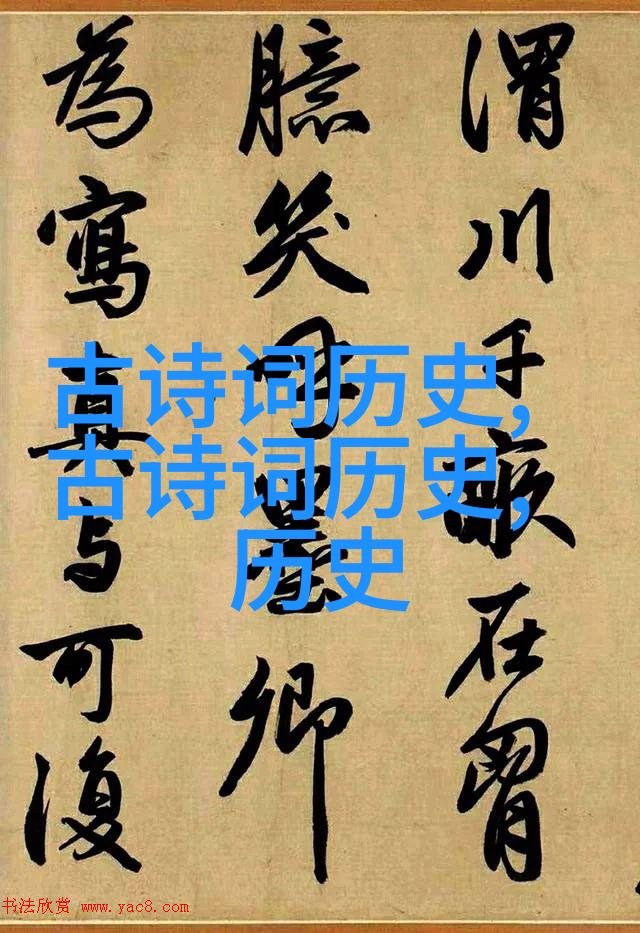 渭川千畝在胷
臆笑呼墨卿
為寫真与可復
古诗词历史,
古诗词历史,
历史
书法欣赏 www.yac8.com